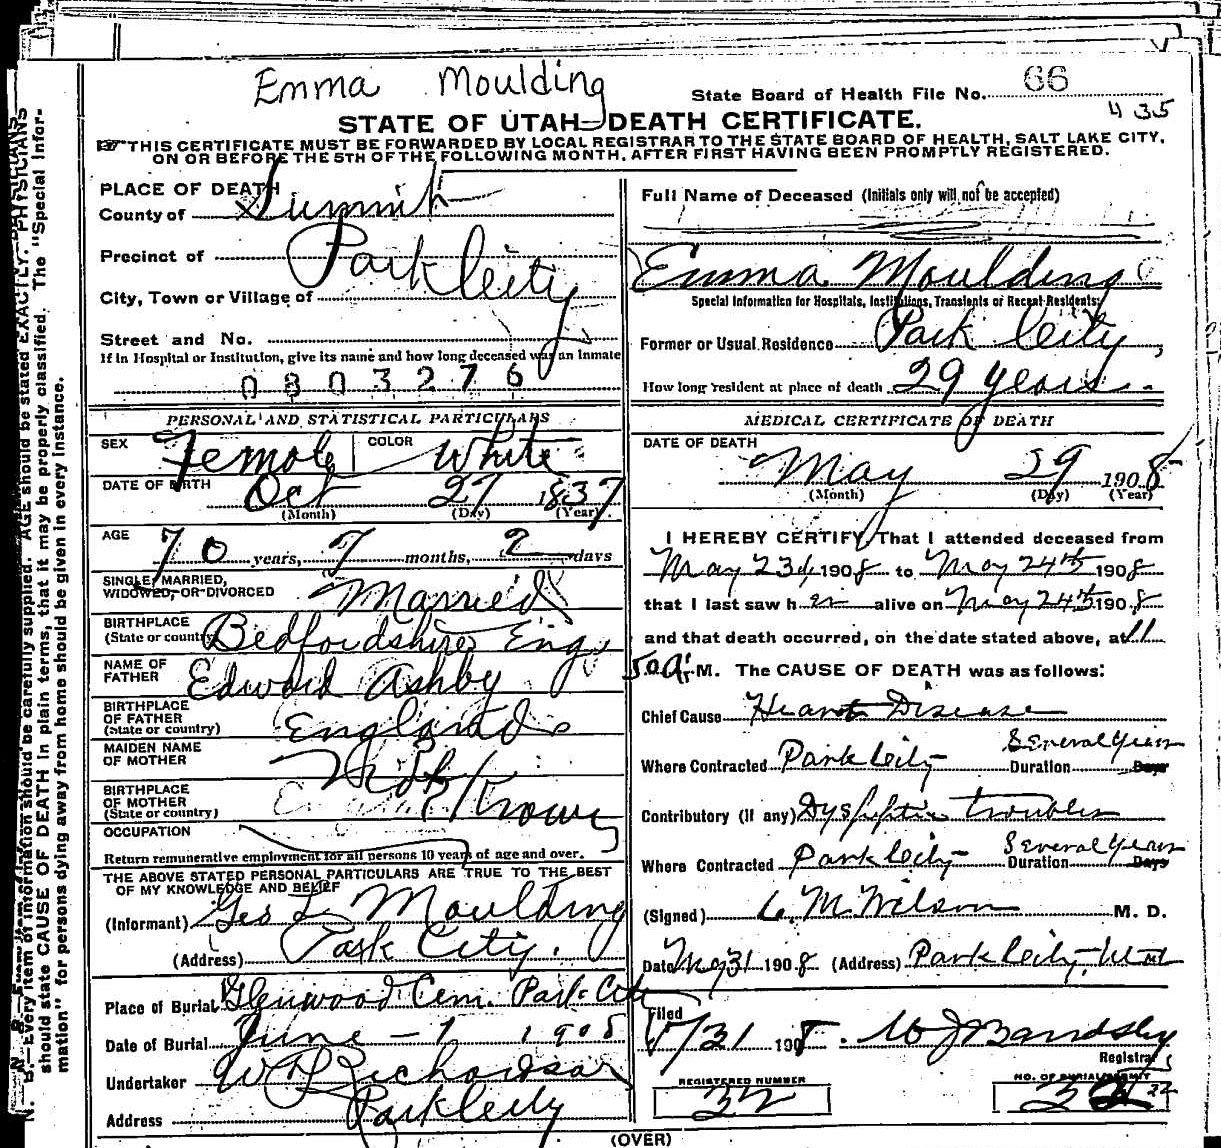 Emma Moulding
State Board of Health File No. 66
435
STATE OF UTAH—DEATH CERTIFICATE.
THIS CERTIFICATE MUST BE FORWARDED BY LOCAL REGISTRAR TO THE STATE BOARD OF HEALTH, SALT LAKE CITY,
ON OR BEFORE THE 5TH OF THE FOLLOWING MONTH, AFTER FIRST HAVING BEEN PROMPTLY REGISTERED.
PLACE OF DEATH
County of Summit
Precinct of Park City
City, Town or Village of
Street and No.
If in Hospital or Institution, give its name and how long deceased was an inmate
0803276
PERSONAL AND STATISTICAL PARTICULARS
SEX Female COLOR White
DATE OF BIRTH Oct 27 1837
(Month) (Day) (Year)
AGE 70 years, 7 months, 2 days
SINGLE, MARRIED,
WIDOWED, OR DIVORCED Married
BIRTHPLACE
(State or country) Bedfordshire Eng.
NAME OF
FATHER Edward Ashby
BIRTHPLACE
OF FATHER
(State or country) England
MAIDEN NAME
OF MOTHER Not Known
BIRTHPLACE
OF MOTHER
(State or country)
OCCUPATION
Return remunerative employment for all persons 10 years of age and over.
THE ABOVE STATED PERSONAL PARTICULARS ARE TRUE TO THE BEST
OF MY KNOWLEDGE AND BELIEF
(Informant) Geo L Moulding
(Address) Park City.
Place of Burial Glenwood Cem. Park City
Date of Burial June - 1 1908
Undertaker W Richardson
Address Park City
Full Name of Deceased (Initials only will not be accepted)
Emma Moulding
Special Information for Hospitals, Institutions, Transients or Recent Residents:
Former or Usual Residence Park City,
How long resident at place of death 29 years.
MEDICAL CERTIFICATE OF DEATH
DATE OF DEATH
May 29 1908
(Month) (Day) (Year)
I HEREBY CERTIFY, That I attended deceased from
May 23d, 1908 to May 24th 1908
that I last saw her alive on May 24th 1908
and that death occurred, on the date stated above, at 11
50 a. M. The CAUSE OF DEATH was as follows:
Chief Cause Heart Disease
Where Contracted Park City Duration Several Years Days
Contributory (if any) Dyspeptic troubles
Where Contracted Park City Duration Several Years Days
(Signed) C. M. Wilson M. D.
Date May 31 1908 (Address) Park City, Utah
Filed
5/31 1908.
Registrar
REGISTERED NUMBER
32
NO. OF BURIAL PERMIT
22
(OVER)
N. B.—Every item of information should be carefully supplied. AGE should be stated EXACTLY. PHYSICIANS
should state CAUSE OF DEATH in plain terms, that it may be properly classified. The "Special Infor-
mation" for persons dying away from home should be given in every instance.